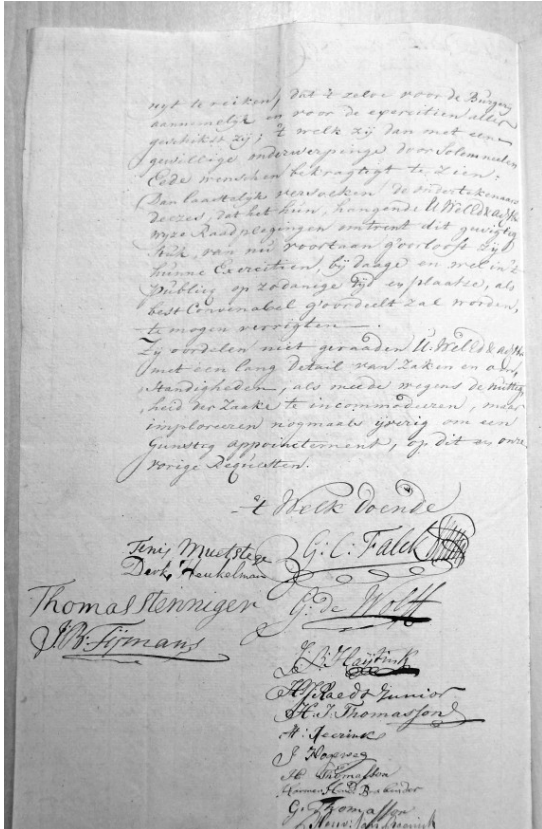 uyt te reiken, dat 't zelve voor de Burgery
aannemelijk en voor de exercitien aller
geschikst zij; 't welk zij dan met een
gewillige onderwerpinge door Solemneelen
Eede wenschen bekragtigt te Zien.
Dan laastelyk versoeken de ondertekenaars
deezes, dat het hun, hangende U.WelEd & Acht
wyze Raadplegingen omtrent dit gewigtig
Stuk, van nu voortaan g'oorlooft zij
hunne Exercitien, bij daage en wel in 't
publicq op zodanige tijd en plaatze, als
best Convenabel g'oordeelt zal worden,
te mogen verrigten.
Zij oordelen niet geraaden U.WelEd &
met een lang detail van Zaken en om-
standigheden, als meede wegens de nuttig-
heid der Zaake te incommodeeren, maar
imploreeren nogmaals ijverig om een
Gunstig appoinctement, op dit en onze
vorige Requesten.
't Welk doende
Tenis
G. C. Falck
Derk Heukelman
Thomas Stenniger
G. de Wolff
J. B. Fijmans
J. B. Haytink
Raedt Junior
H. J. Thomasson
W.
J.
Thomasson
Harmen Brabender
G. Thomassen